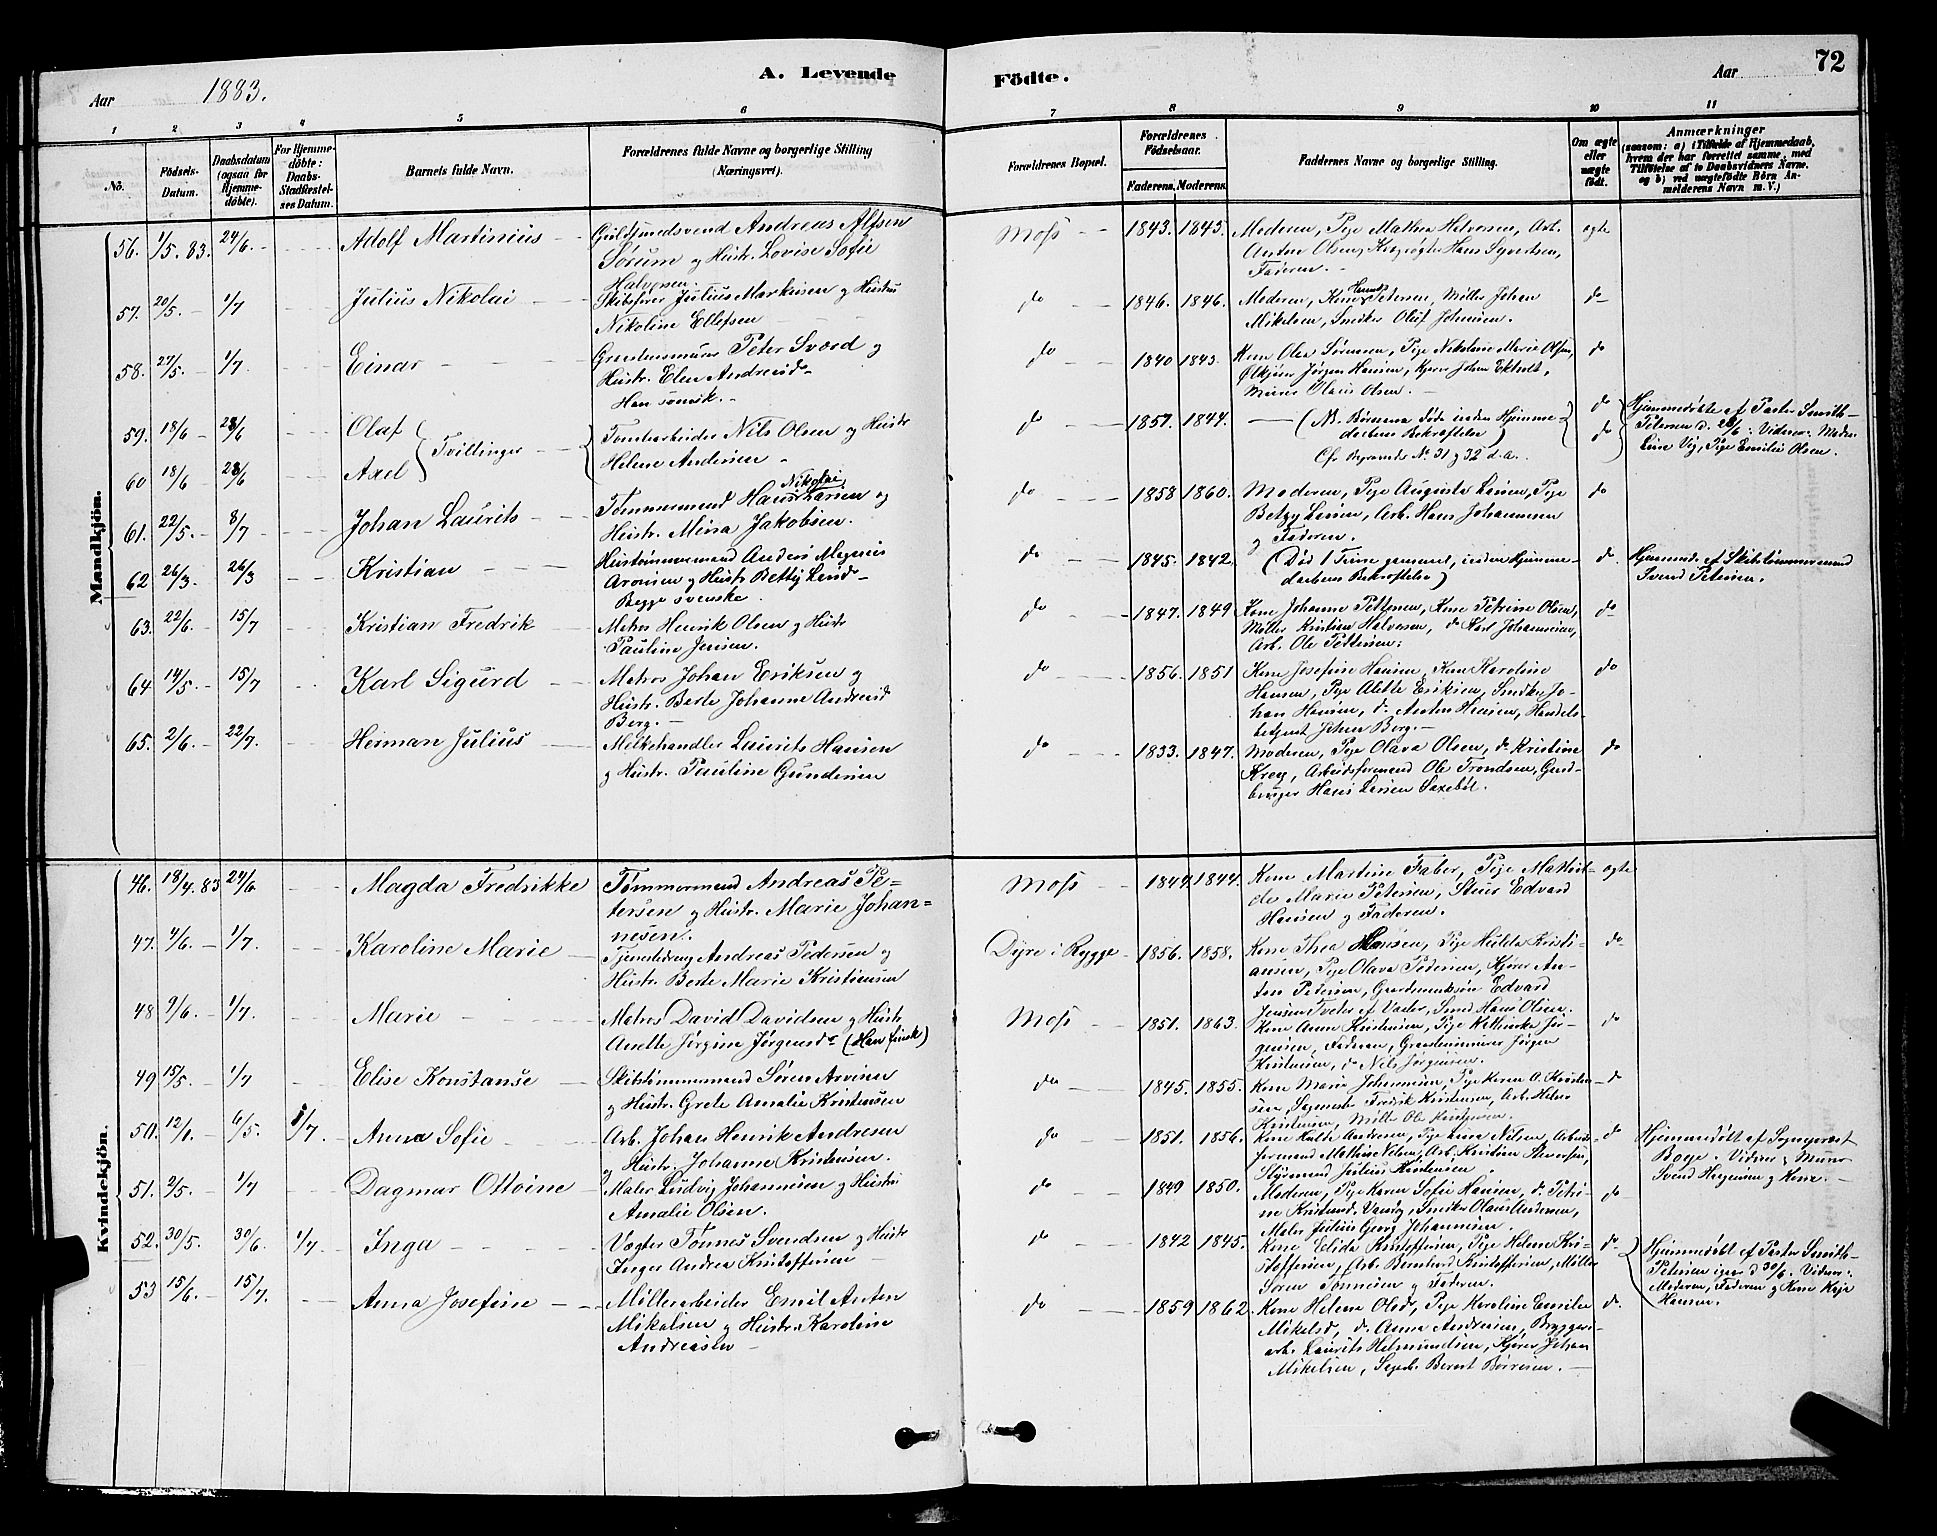 A. Levende Födte.
72
Aar 1883.
Aar
1 2 3 4 5 6 7 8 9 10 11
No.
Födsels-
Datum.
Daabsdatum
(ogsaa for
Hjemme-
döbte).
For Hjemme-
döbte:
Daabs-
Stadfæstel-
ses Datum.
Barnets fulde Navn.
Forældrenes fulde Navne og borgerlige Stilling
(Næringsvei).
Forældrenes Bopæl.
Forældrenes
Födselsaar.
Faderens. Moderens.
Faddernes Navne og borgerlige Stilling.
Om ægte
eller
uægte
født.
Anmærkninger
(saasom: a) i Tilfælde af Hjemmedaab,
hvem der har forrettet samme, med
Tilföielse af to Daabsvidners Navne,
og b) ved uægtefödte Börn An-
melderens Navn m. V.)
Mandkjön.
56. 1/5. 83. 24/6. Adolf Martinius Guldsmedsvend Andreas Alfsen
Sørum og Hustr. Lovise Sofie
Halvorsen
Moss 1843. 1843. Moderen, Pige Mathea Halvorsen, Arb.
Anton Olsen, Hans Syvertsen,
Faderen.
ægte
57. 20/5. 1/7 Julius Nikolai Skibsfører Julius Markusen og Hustru
Nikoline Ellefsen
do 1846. 1846. Moderen, Kone Petersen, Møller Johan
Mikelsen, Snedker Oluf Johansen.
do
58. 27/5. 1/7. Einar Peter Sværd og
Hustr. Elen Andreasd.
Han svensk.
do 1840 1843. Kone Olea Sørensen, Pige Nikoline Marie Olsen,
Jørgen Hansen, Kjører Johan Ekholt,
Murer Olaus Olsen.
do
59. 18/6 23/6 Olaf
60 18/6 23/6 Axel
Tvillinger
Tomtearbeider Nils Olsen og Hustr
Helene Andersen
do 1857. 1844. (NB. Børnene døde inden Hjemme-
daabens Bekræftelse)
Cfr. Begravede No. 31 og 32 d.a.
do
do
Hjemmedøbte af Pastor Smith-
Petersen d. 23/6. Vidner: Made-
line Vig, Pige Emilie Olsen.
61. 22/5. 8/7 Johan Laurits Tømmermand Hans Nikolai Larsen og
Hustr. Mina Jakobsen.
do 1858 1860. Moderen, Pige Augusta Larsen, Pige
Betzy Larsen, Arb. Hans Johannesen
og Faderen.
do
62 26/3. 26/3 Kristian Hustømmermand Anders Magnus
Aronsen og Hustr Betty Lind-
Begge svenske.
do 1845. 1842. (Død 1 Time gammel, inden Hjemme-
daabens Bekræftelse)
do. Hjemmed. af Skibstømmermand
Svend Petersen.
63. 22/6. 15/7 Kristian Fredrik Matros Henrik Olsen og Hustr
Pauline Jensen.
do 1847. 1849 Kone Johanne Pettersen, Kone Petrine Olsen,
Møller Kristian Halvorsen, do Karl Johannesen,
Arb. Ole Pettersen.
do
64 14/5. 15/7 Karl Sigurd Matros Johan Eriksen og
Hustr. Berte Johanne Andreasd
Berg.
do 1856. 1851 Kone Josefine Hansen, Kone Karoline
Hansen, Pige Alette Eriksen, Snedker Jo-
han Hansen, do Anton Hansen, Handels-
betjent Johan Berg.
do
65. 2/6. 22/7. Herman Julius Melkehandler Laurits Hansen
og Hustr. Pauline Gundersen
do 1833. 1847. Moderen, Pige Olava Olsen, do Kristine
Krog, Arbeidsformand Ole Trondsen, Gaard-
bruger Hans Larsen Saxebøl.
do
Kvindekjön.
46. 18/4. 83 24/6. Magda Fredrikke Tømmermand Andreas Pe-
tersen og Hustr. Marie Johan-
nesen.
Moss 1844. 1844. Kone Martine Faber, Pige Mathil-
de Marie Petersen, Stuer Edvard
Hansen og Faderen.
ægte
47. 4/6. 1/7. Karoline Marie Tjenestedreng Andreas Pedersen og
Hustr. Berte Marie Kristiansen
Dyre i Rygge 1856. 1858. Kone Thea Hansen, Pige Hulda Kristi-
ansen, Pige Olava Pedersen, Kjører An-
ton Petersen, Gaardmandssøn Edvard
Jensen Tveter af Vaaler, Smed Hans Olsen.
do
48 9/6. 1/7. Marie Matros David Davidsen og Hustr
Anette Jørgine Jørgensdr (Han finsk)
Moss 1851. 1863. Kone Anne Kristensen, Pige Jør-
gensen, Faderen, Jørgen
Kristensen, do Nils Jørgensen.
do
49 15/5. 1/7 Elise Konstanse Skibstømmermand Søren Arvesen
og Hustr. Grete Amalie Kristensen
do 1845. 1855. Kone Maria Johannesen, Pige Karen A. Kristen-
sen, Sagmester Fredrik Kristensen, Arb. Helmer
Kristensen, Møller Ole Kristensen.
do
50. 12/1. 6/5. 8/7. Anna Sofie Arb. Johan Henrik Andresen
og Hustr. Johanne Kristensen.
do 1851. 1856. Kone Hulda Andresen, Pige Lina Nilsen, Arbeids-
formand Mathias Nilsen, Arb. Kristian
Styrmand Julius Kristensen.
do
Hjemmedøbt af Sogneprest
Boye. Vidner: Murer
Svend og Kone.
51. 2/5. 1/7 Dagmar Ottoine Maler Ludvig Johannesen og Hustru
Amalie Olsen.
do 1849 1850. Moderen, Pige Karen Sofie Hansen, do Petri-
ne Kristiansd. Vansjø, Snedker Olaus Andersen,
Maler Julius Georg Johannesen.
do
52. 30/5. 30/6. 1/7 Inga Vægter Tønnes Svendsen og Hustr
Inger Andrea Kristoffersen
do 1842 1845. Kone Elida Kristoffersen, Pige Helene Kri-
stoffersen, Arb. Bernhard Kristoffersen, Møller
Søren Tønnesen og Faderen.
do.
Hjemmedøbt af Pastor Smith-
Petersen igaar d 30/6. Vidner:
Moderen, Faderen og Kone
Hansen.
53 15/6. 15/7. Anna Josefine Møllerarbeider Emil Anton
Mikalsen og Hustr. Karoline
Andreassen
do 1859 1862. Kone Helene Olsdr, Pige Karoline Emilie
Mikelsd, do Anna Andresen, Bryggeri-
arb. Laurits Helmundsen, Kjører Johan
Mikelsen, Bernt Børresen.
do.